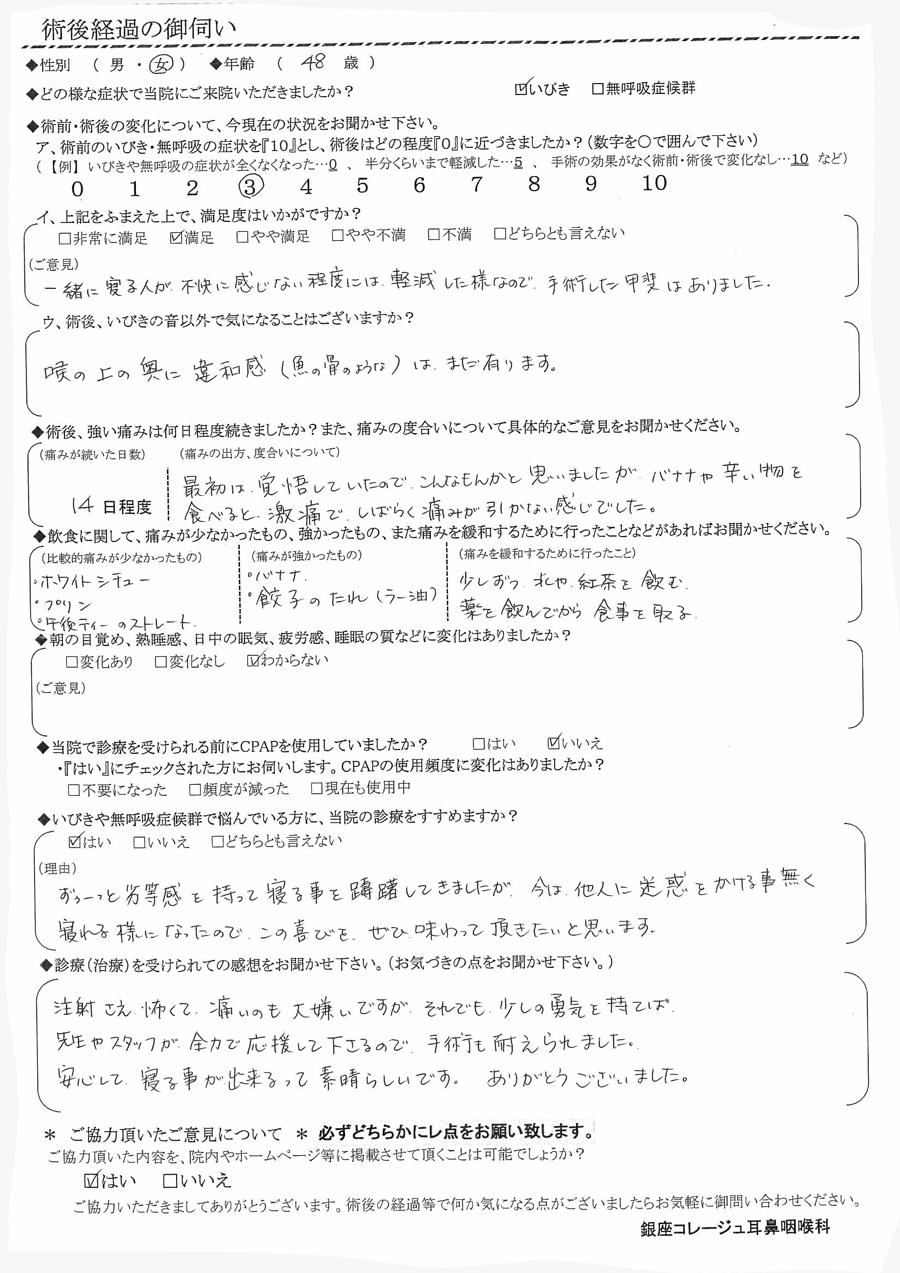 術後経過の御伺い
◆性別 ( 男 ・ 女 ) ◆年齢 ( 48 歳 )
◆どの様な症状で当院にご来院いただきましたか? ☑いびき □無呼吸症候群
◆術前・術後の変化について、今現在の状況をお聞かせ下さい。
ア、術前のいびき・無呼吸の症状を『10』とし、術後はどの程度『0』に近づきましたか?(数字を○で囲んで下さい)
(【例】 いびきや無呼吸の症状が全くなくなった…0 、 半分くらいまで軽減した…5 、 手術の効果がなく術前・術後で変化なし…10 など)
0 1 2 3 4 5 6 7 8 9 10
イ、上記をふまえた上で、満足度はいかがですか?
□非常に満足 ☑満足 □やや満足 □やや不満 □不満 □どちらとも言えない
(ご意見)
一緒に寝る人が、不快に感じない程度には、軽減した様なので、手術した甲斐はありました。
ウ、術後、いびきの音以外で気になることはございますか?
喉の上の奥に違和感(魚の骨のような)は、まだ有ります。
◆術後、強い痛みは何日程度続きましたか?また、痛みの度合いについて具体的なご意見をお聞かせください。
(痛みが続いた日数) (痛みの出方、度合いについて)
最初は、覚悟していたので、こんなもんかと思いましたが、バナナや辛い物を
14 日程度 食べると、激痛で、しばらく痛みが引かない感じでした。
◆飲食に関して、痛みが少なかったもの、強かったもの、また痛みを緩和するために行ったことなどがあればお聞かせください。
(比較的痛みが少なかったもの) (痛みが強かったもの) (痛みを緩和するために行ったこと)
・ホワイトシチュー ・バナナ、 少しずつ、水や、紅茶を飲む、
・プリン ・餃子のたれ(ラー油) 薬を飲んでから食事を取る。
・午後ティーのストレート
◆朝の目覚め、熟睡感、日中の眠気、疲労感、睡眠の質などに変化はありましたか?
□変化あり □変化なし ☑わからない
(ご意見)
◆当院で診療を受けられる前にCPAPを使用していましたか? □はい ☑いいえ
・『はい』にチェックされた方にお伺いします。CPAPの使用頻度に変化はありましたか?
□不要になった □頻度が減った □現在も使用中
◆いびきや無呼吸症候群で悩んでいる方に、当院の診療をすすめますか?
☑はい □いいえ □どちらとも言えない
(理由)
ずぅーっと劣等感を持って寝る事を躊躇してきましたが、今は、他人に迷惑をかける事無く
寝れる様になったので、この喜びを、ぜひ、味わって頂きたいと思います。
◆診療(治療)を受けられての感想をお聞かせ下さい。(お気づきの点をお聞かせ下さい。)
注射さえ、怖くて、痛いのも大嫌いですが、それでも、少しの勇気を持てば、
先生やスタッフが、全力で応援して下さるので、手術も耐えられました。
安心して、寝る事が出来るって素晴らしいです。 ありがとうございました。
＊ ご協力頂いたご意見について ＊ 必ずどちらかにレ点をお願い致します。
ご協力頂いた内容を、院内やホームページ等に掲載させて頂くことは可能でしょうか?
☑はい □いいえ
ご協力いただきましてありがとうございます。術後の経過等で何か気になる点がございましたらお気軽に御問い合わせください。
銀座コレージュ耳鼻咽喉科